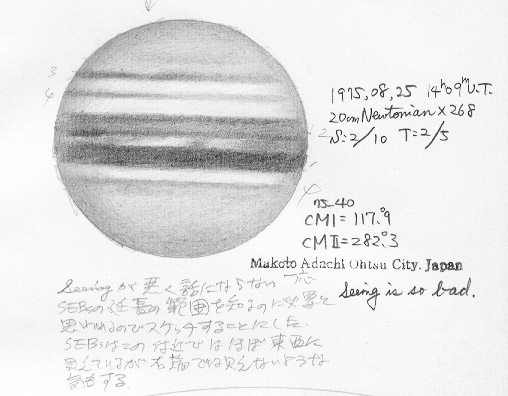 3
4
2
1975,08,25 14ʰ09ᵐU.T.
20cm Newtonian × 268
S:2/10 T:2/5
75-40
CMI = 117.°9
CMII = 282.°3
Makoto Adachi Ohtsu City. Japan
Seeing is so bad.
Seeingが悪く話にならない 一応
SEBsの延長の範囲を知るのに必要と
思われるのでスケッチすることにした.
SEBsはこの付近ではほぼ東西に
見えているが右端では見えないような
気もする.